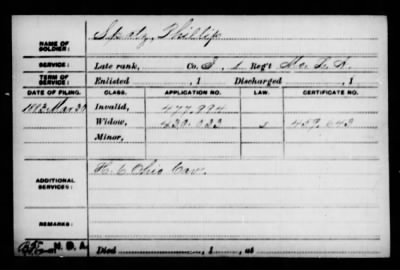 NAME OF SOLDIER: Spatz, Phillip
SERVICE: Late rank, Co. I, 1 Reg't Mo. L. A.
TERM OF SERVICE: Enlisted , 1 Discharged , 1
DATE OF FILING. CLASS. APPLICATION NO. LAW. CERTIFICATE NO.
1883 Mar Invalid, 477,994
Widow, 639.033 459.643
Minor,
ADDITIONAL SERVICES: Ohio Cav.
REMARKS:
N. D. A. Died , 1 , at